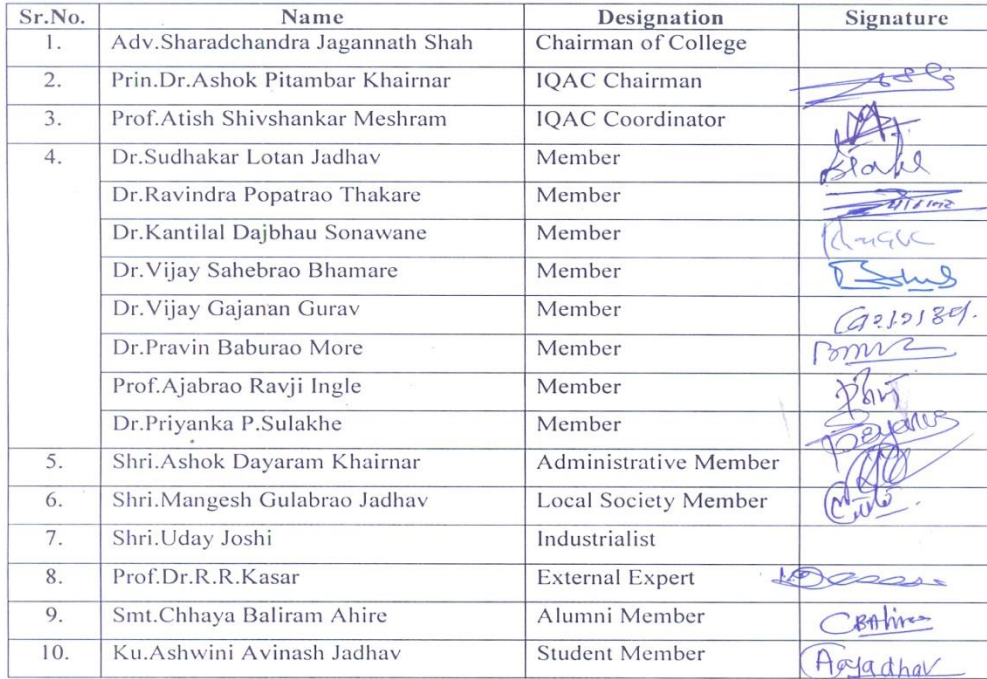 Sr.No. Name Designation Signature
1. Adv.Sharadchandra Jagannath Shah Chairman of College
2. Prin.Dr.Ashok Pitambar Khairnar IQAC Chairman
3. Prof.Atish Shivshankar Meshram IQAC Coordinator
4. Dr.Sudhakar Lotan Jadhav Member
Dr.Ravindra Popatrao Thakare Member
Dr.Kantilal Dajbhau Sonawane Member
Dr.Vijay Sahebrao Bhamare Member
Dr.Vijay Gajanan Gurav Member
Dr.Pravin Baburao More Member
Prof.Ajabrao Ravji Ingle Member
Dr.Priyanka P.Sulakhe Member
5. Shri.Ashok Dayaram Khairnar Administrative Member
6. Shri.Mangesh Gulabrao Jadhav Local Society Member
7. Shri.Uday Joshi Industrialist
8. Prof.Dr.R.R.Kasar External Expert
9. Smt.Chhaya Baliram Ahire Alumni Member
10. Ku.Ashwini Avinash Jadhav Student Member